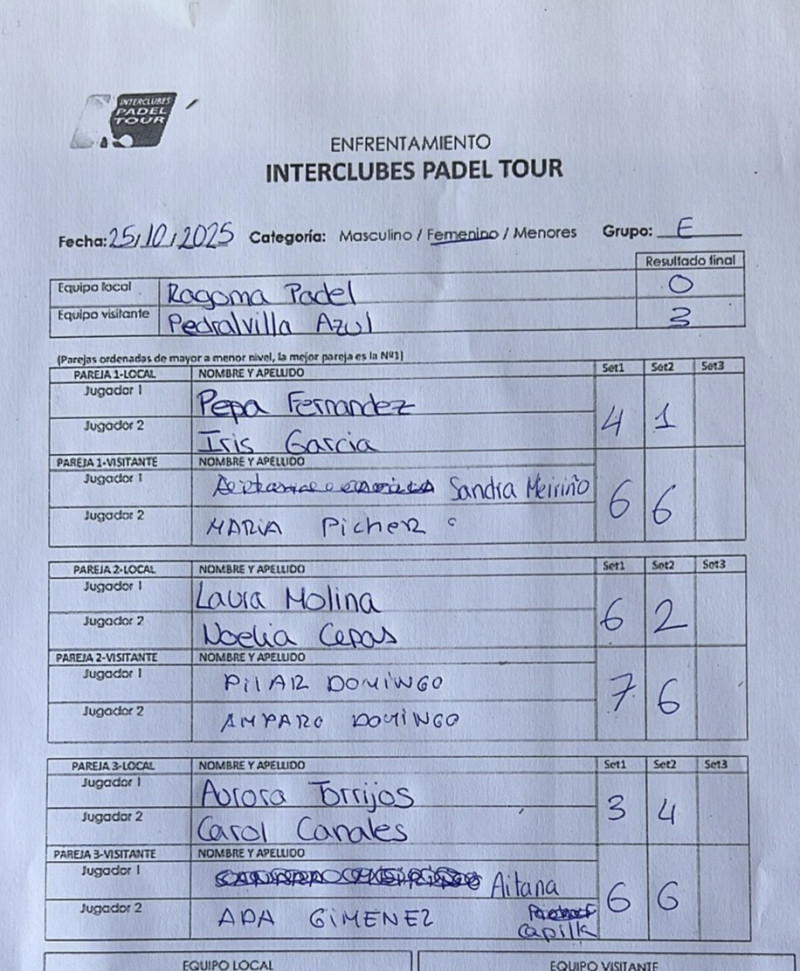 INTERCLUBES
PADEL
TOUR
ENFRENTAMIENTO
INTERCLUBES PADEL TOUR
Fecha: 25/10/2025 Categoría: Masculino / Femenino / Menores Grupo: E
Resultado final
Equipo local Ragoma Padel 0
Equipo visitante Pedralvilla Azul 3
(Parejas ordenadas de mayor a menor nivel, la mejor pareja es la Nº1)
PAREJA 1-LOCAL NOMBRE Y APELLIDO Set1 Set2 Set3
Jugador 1 Pepa Fernandez
4 1
Jugador 2 Iris Garcia
PAREJA 1-VISITANTE NOMBRE Y APELLIDO
Jugador 1 Sandra Meiriño
6 6
Jugador 2 MARIA PicHER
PAREJA 2-LOCAL NOMBRE Y APELLIDO Set1 Set2 Set3
Jugador 1 Laura Molina
6 2
Jugador 2 Noelia Cepas
PAREJA 2-VISITANTE NOMBRE Y APELLIDO
Jugador 1 PiLAR DOMiNGO
7 6
Jugador 2 AMPARO DOMiNGO
PAREJA 3-LOCAL NOMBRE Y APELLIDO Set1 Set2 Set3
Jugador 1 Aurora Torrijos
3 4
Jugador 2 Carol Canales
PAREJA 3-VISITANTE NOMBRE Y APELLIDO
Jugador 1 Aitana
6 6
Jugador 2 ADA GIMENEZ
EQUIPO LOCAL EQUIPO VISITANTE